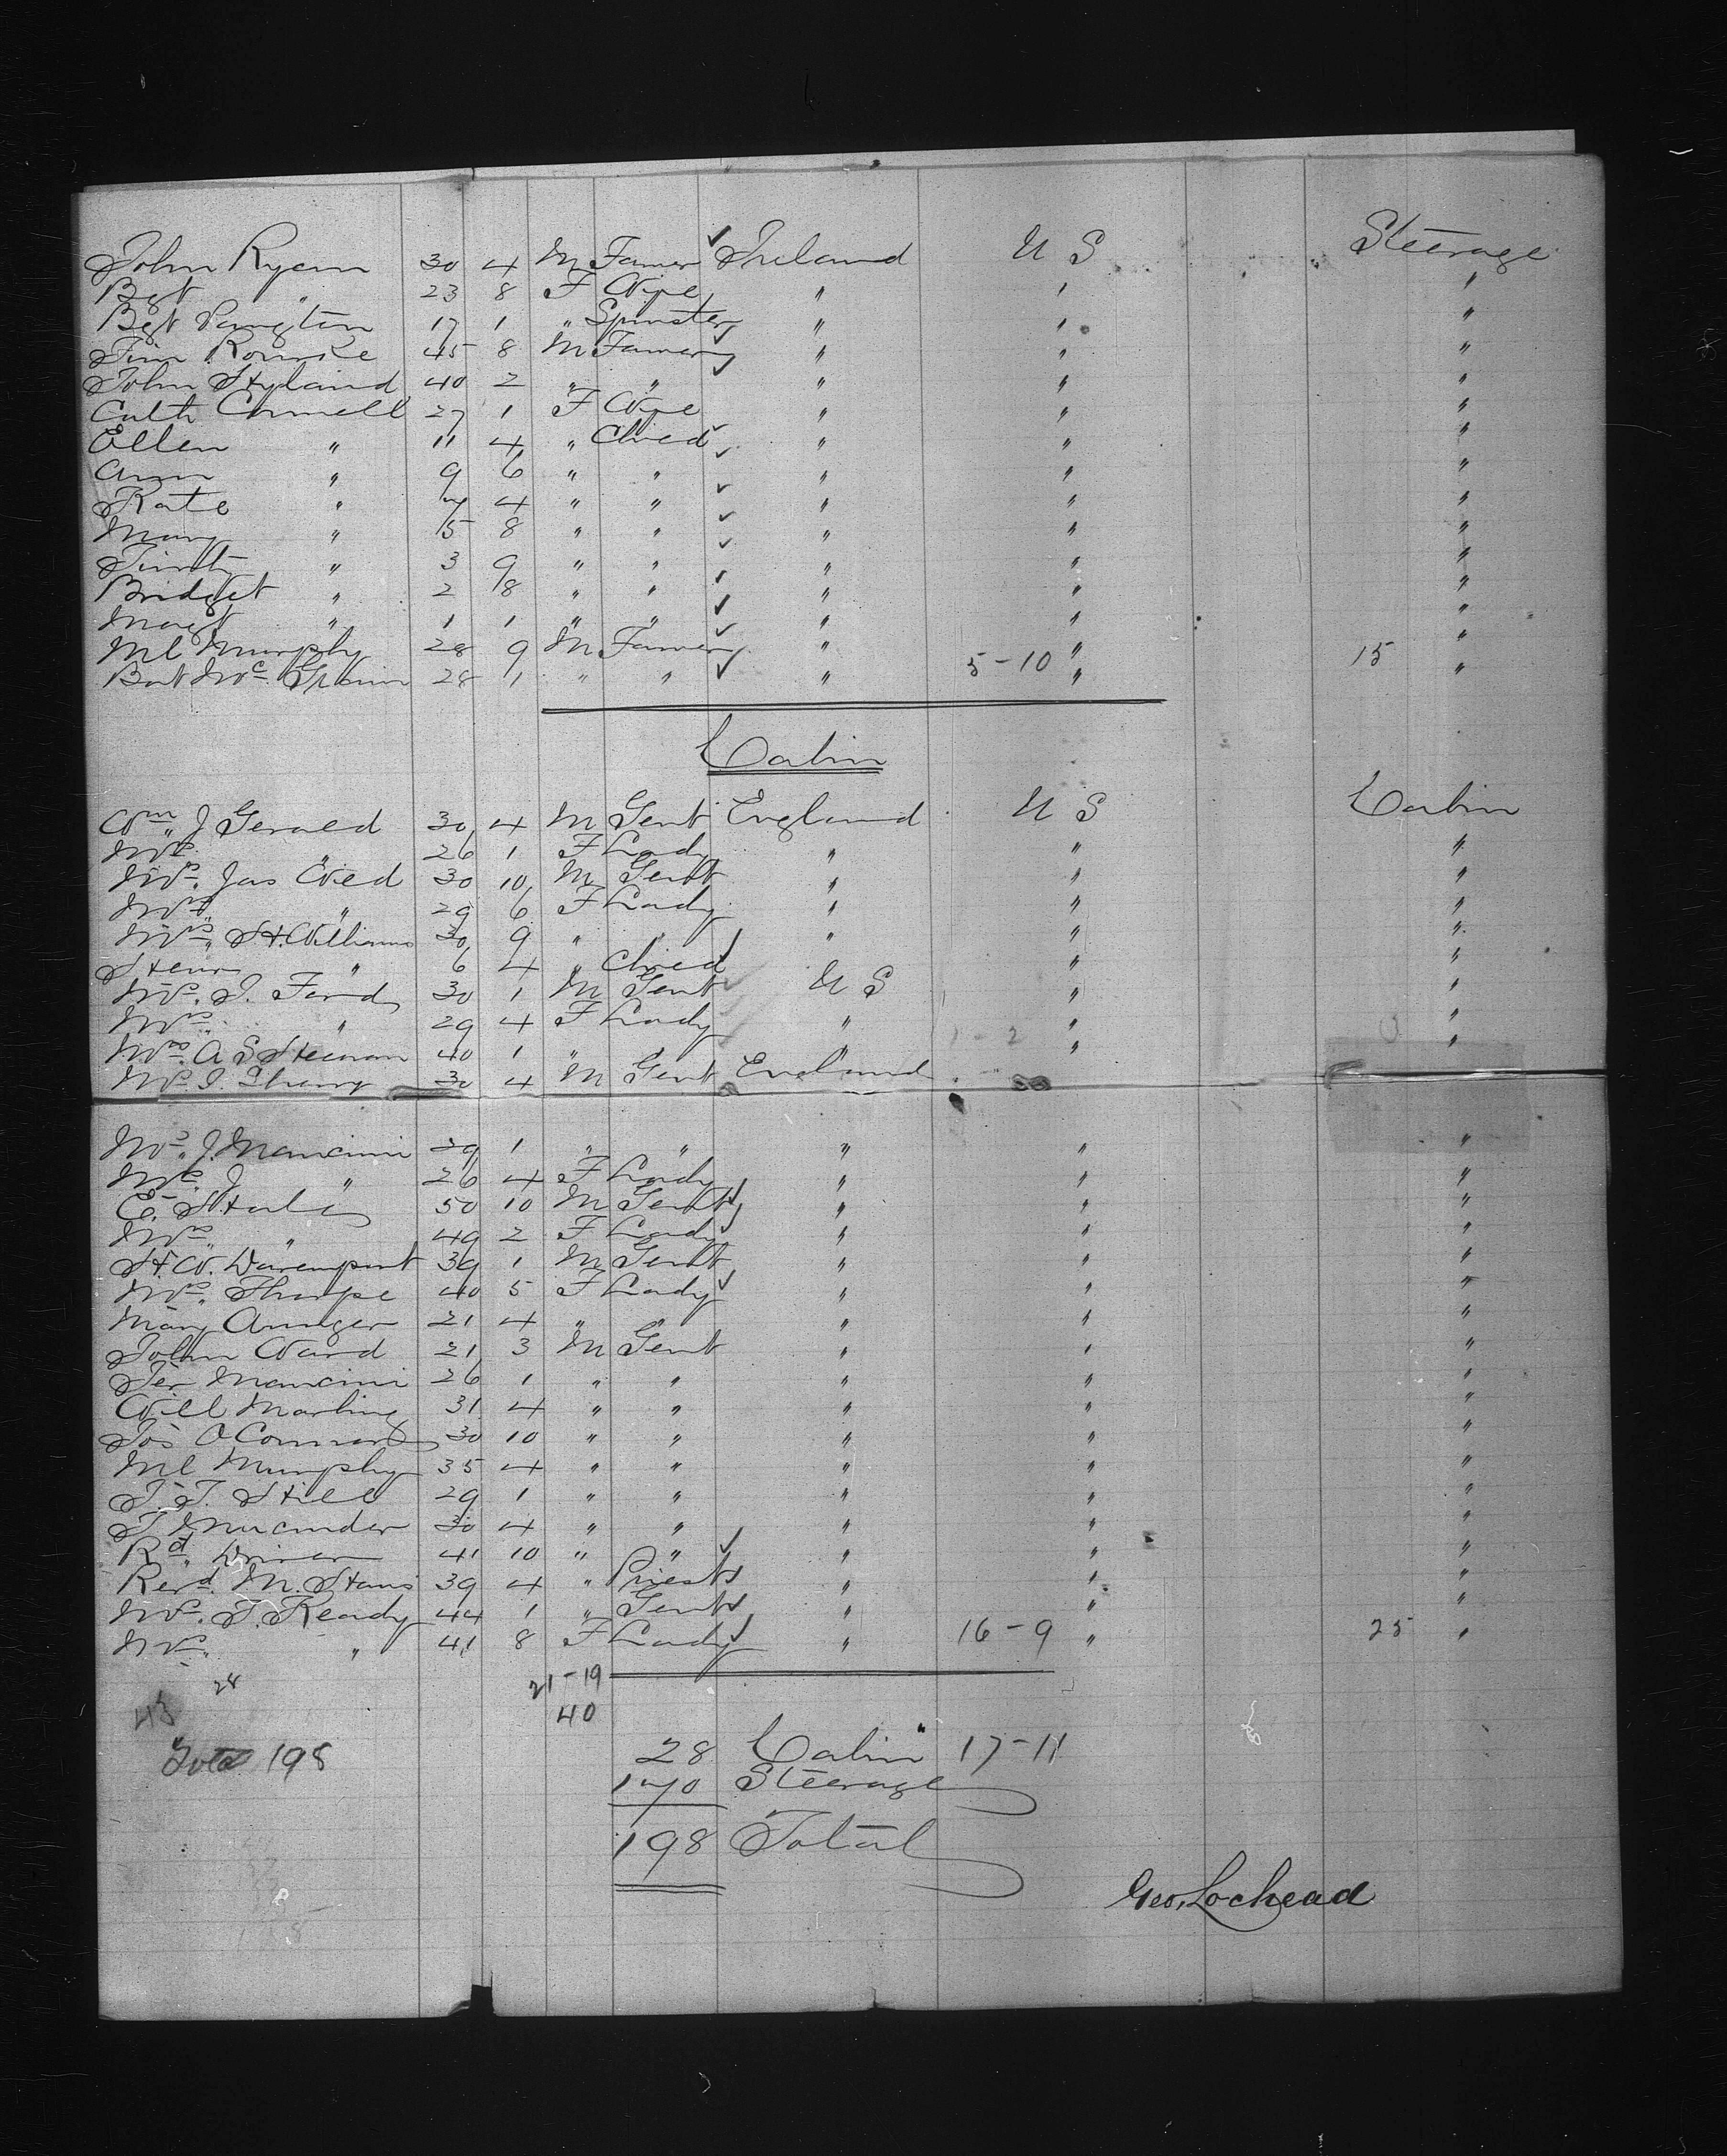 John Ryan 30 4 M Famer Ireland U S Steerage
Bgt " 23 8 F Wife " " "
Bgt 17 1 " Spinster " " "
Tim Rourke 45 8 M Famer " " "
John Hyland 40 2 " " " " "
Cath Connell 27 1 F Wife " " "
Ellen " 11 4 " Child " " "
Ann " 9 6 " " " " "
Kate " 7 4 " " " " "
Mary " 5 8 " " " " "
Timty " 3 9 " " " " "
Bridget " 2 8 " " " " "
Magt " 1 1 " " " " "
Ml Murphy 28 9 M Famer " " "
Bart Mc 28 1 " " " 5-10 " 15 "
Cabin
Wm J Gerald 30 4 M Gent England U S Cabin
Mrs " 26 1 F Lady " " "
Mr. Jas Wild 30 10 M Gent " " "
Mrs " 29 6 F Lady " " "
Mrs H. Williams 30 9 " " " " "
Henry " 6 4 " Child " "
Mr. T. Ford 30 1 M Gent U S " "
Mrs " 29 4 F Lady " " "
Mrs. A S 40 1 " " 1-2 " "
Mr. J. 30 4 M Gent England
Mr. J. Mancini 29 1 " " " " "
Mrs. J " 26 4 F Lady " " "
E. 50 10 M Gent " " "
Mrs " 49 2 F Lady " " "
H. W. Davenport 39 1 M Gent " " "
Mrs. Thorpe 40 5 F Lady " " "
Mary 21 4 " " " " "
John Ward 21 3 M Gent " " "
Mancini 26 1 " " " " "
Will Marling 31 4 " " " " "
Jos O'Connor 30 10 " " " " "
Ml Murphy 35 4 " " " " "
T. T. Hill 29 1 " " " " "
T 30 4 " " " " "
Rd. Driver 41 10 " " " " "
Revd. M. 39 4 " Priest " " "
Mr. T. Ready 44 1 " Gent " " "
Mrs. " 41 8 F Lady " 16-9 " 25 "
28 21-19
43 40
Total 198 28 Cabin 17-11
170 Steerage
198 Total
Geo. Lochead